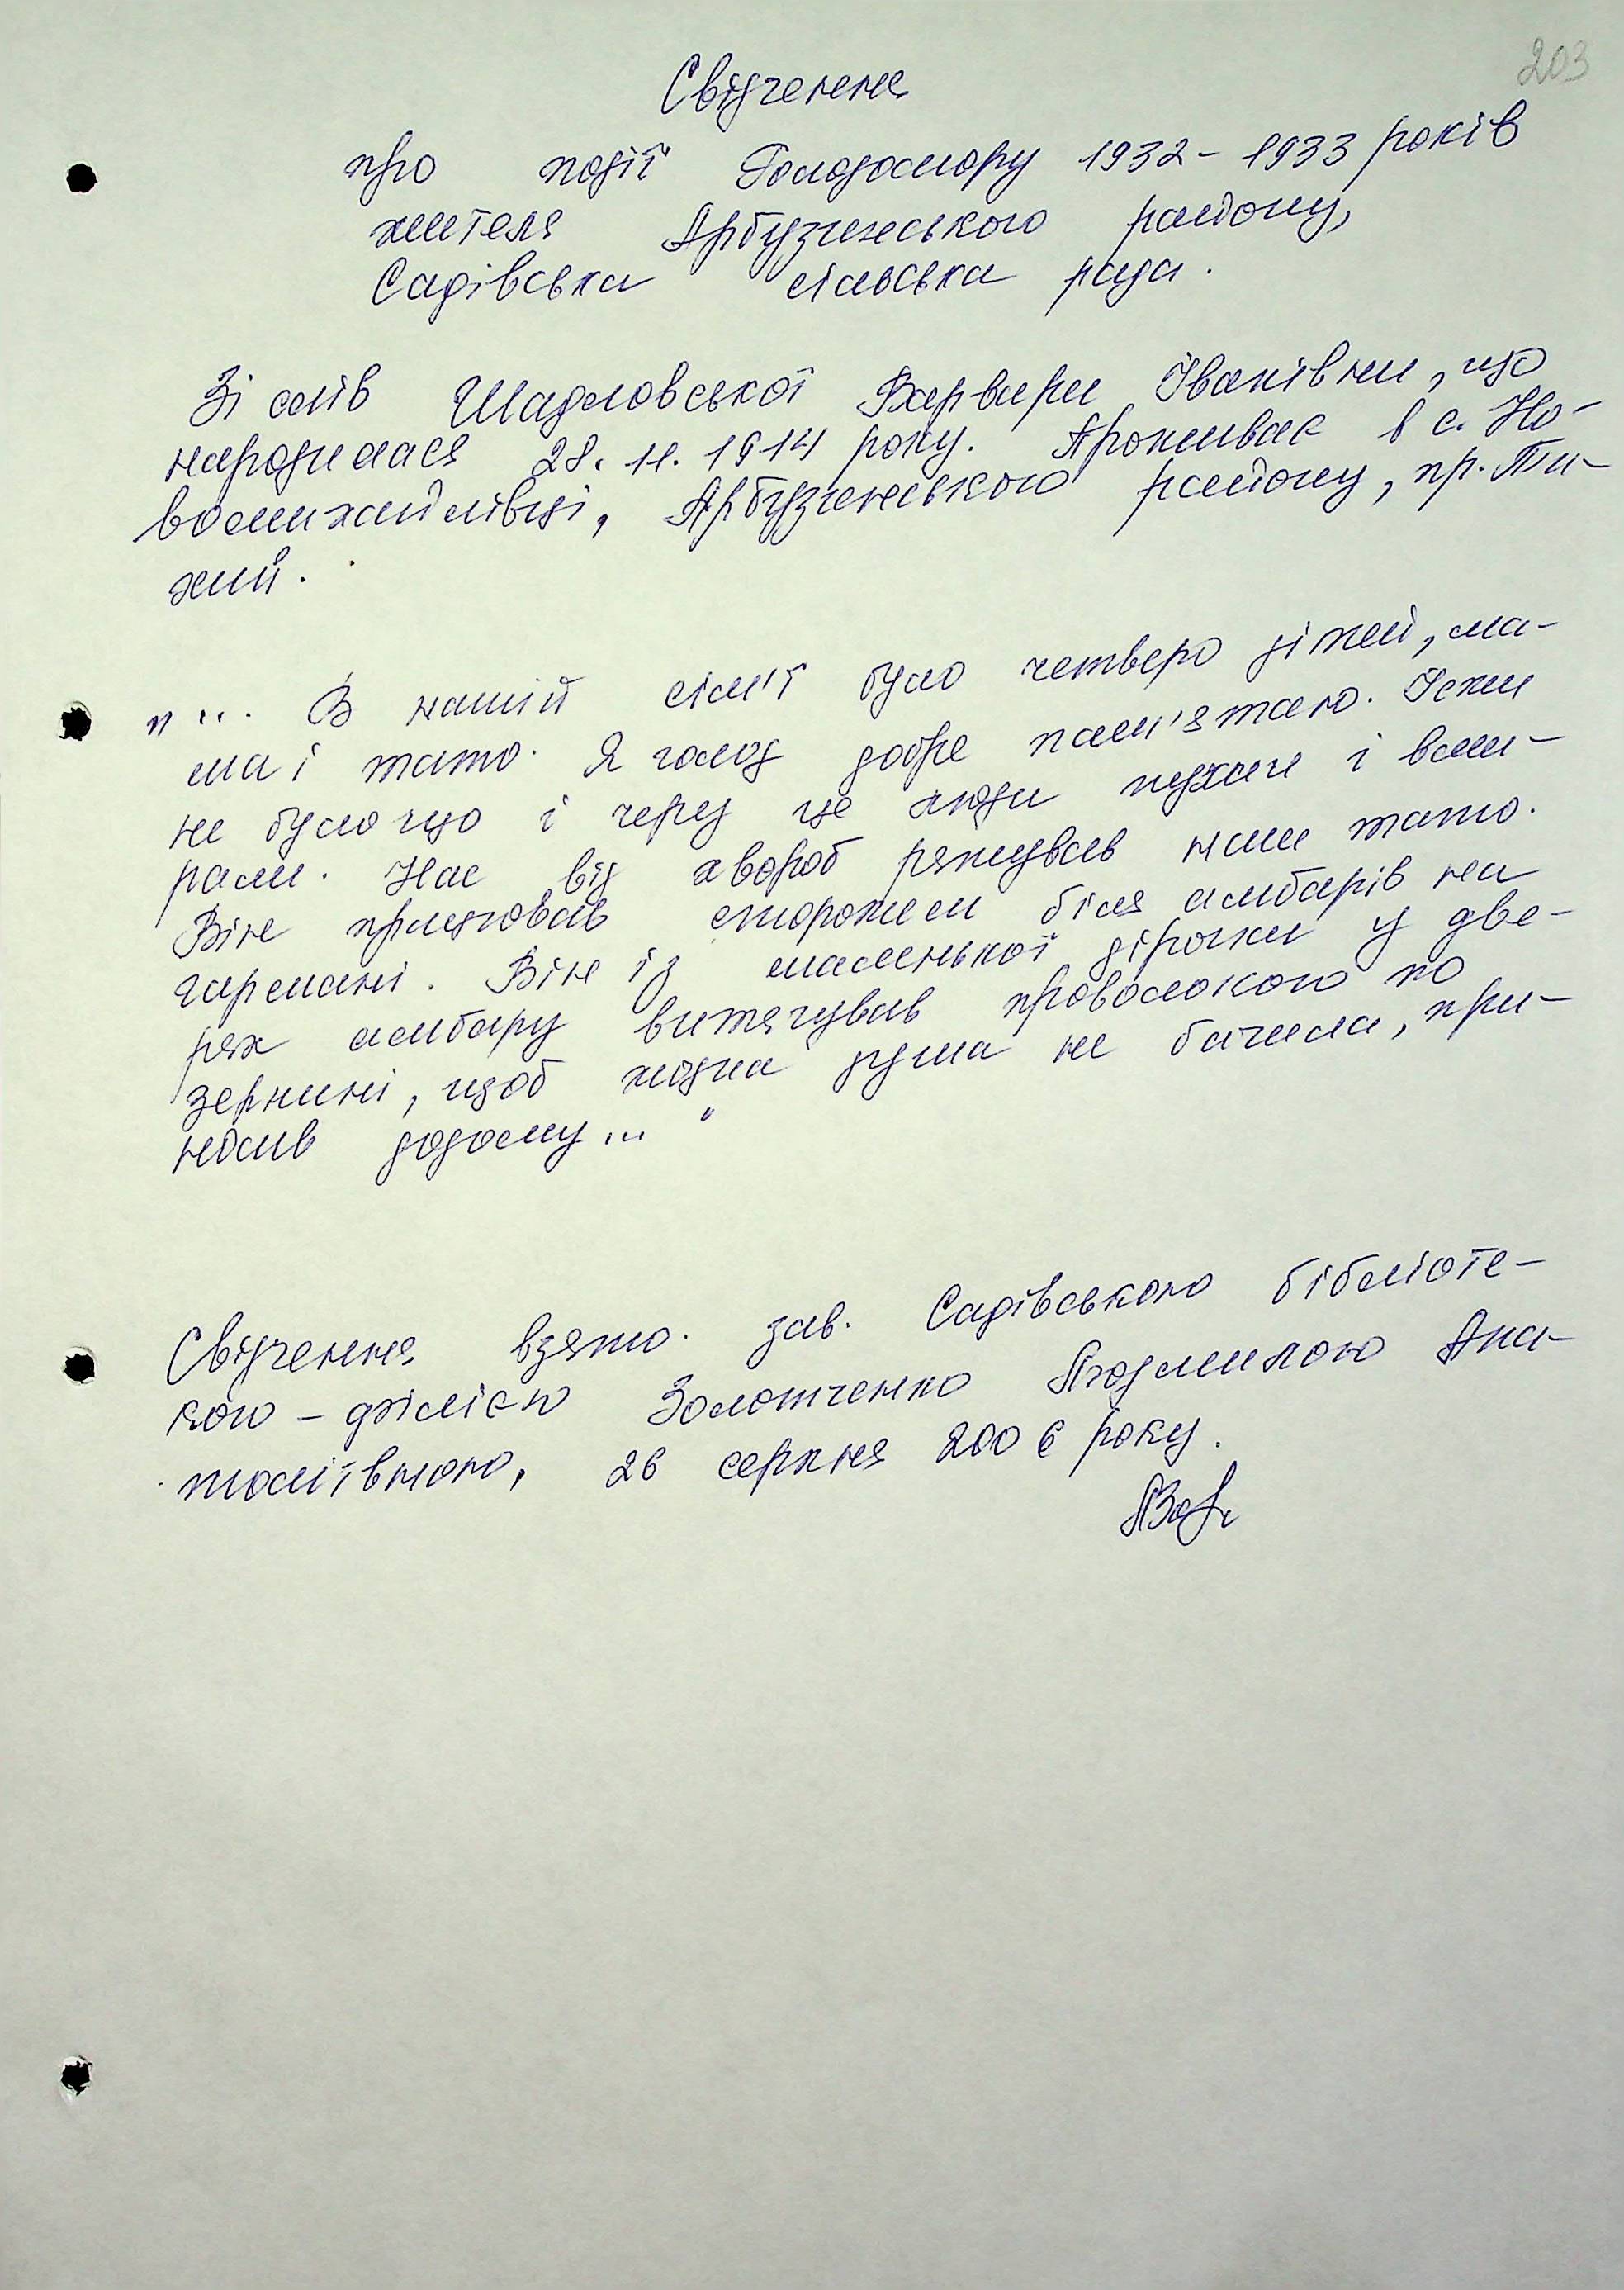 203
Свідчення
про події Голодомору 1932-1933 років
жителя Арбузинського району,
Садівська сільська рада.
Зі слів Шадловської Варвари Іванівни, що
народилася 28.11.1914 року. Проживає в с. Но-
вомихайлівці, Арбузинського району, пр. Ти-
хий.
"... В нашій сім'ї було четверо дітей, ма-
ма і тато. Я голод добре пам'ятаю. Їсти
не було що і через це люди пухли і вми-
рали. Нас від хвороб рятував наш тато.
Він працював сторожем біля амбарів на
гармані. Він із маленької дірочки у две-
рях амбару витягував проволокою по
зернині, щоб жодна душа не бачила, при-
носив додому..."
Свідчення взято зав. Садівською бібліоте-
кою-філією Золотченко Людмилою Ана-
толіївною, 26 серпня 2006 року.